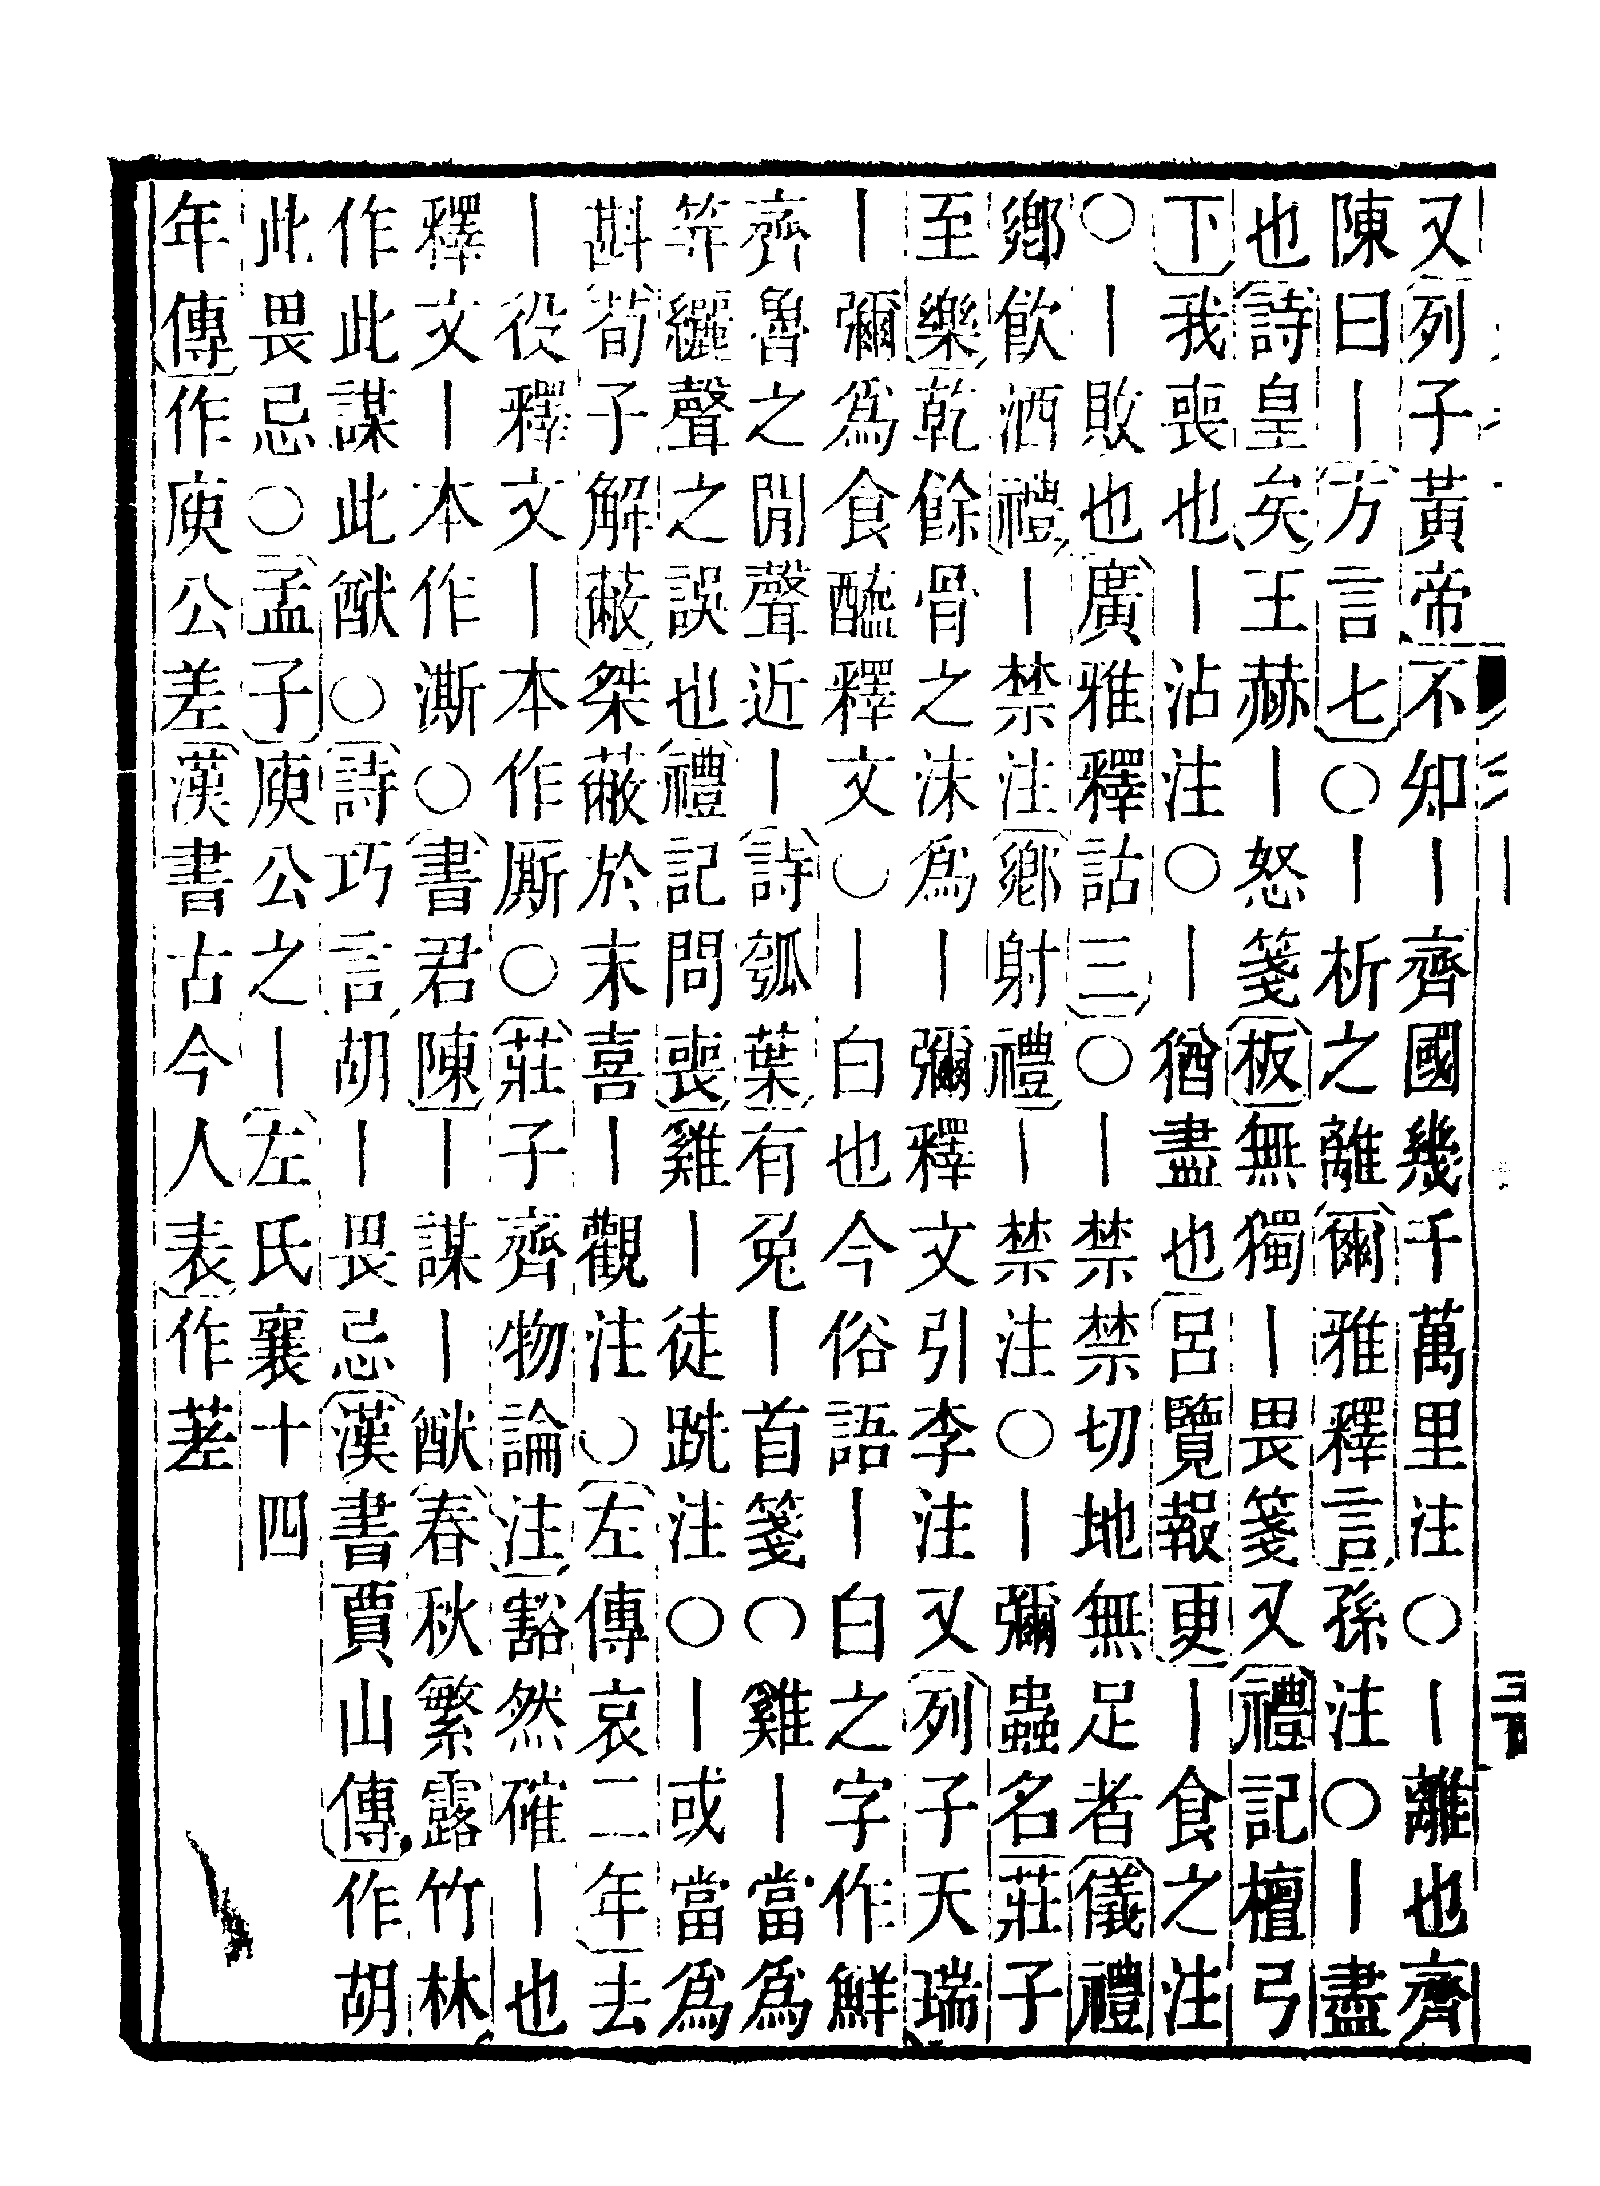 又列子黃帝不知｜齊國幾千萬里注○｜離也齊
陳曰｜方言七○｜析之離爾雅釋言孫注○｜盡
也詩皇矣王赫｜怒箋板無獨｜畏箋又禮記檀弓
下我喪也｜沾注○｜猶盡也呂覽報更｜食之注
○｜敗也廣雅釋詁三○｜禁禁切地無足者儀禮
鄉飲酒禮｜禁注鄉射禮｜禁注○｜彌蟲名莊子
至樂乾餘骨之沬爲｜彌釋文引李注又列子天瑞
｜彌爲食醯釋文○｜白也今俗語｜白之字作鮮
齊魯之閒聲近｜詩瓠葉有兔｜首箋○雞｜當爲
笄纚聲之誤也禮記問喪雞｜徒跣注○｜或當爲
斟荀子解蔽桀蔽於末喜｜觀注○左傳哀二年去
｜役釋文｜本作厮○莊子齊物論注豁然確｜也
釋文｜本作澌○書君陳｜謀｜猷春秋繁露竹林
作此謀此猷○詩巧言胡｜畏忌漢書賈山傳作胡
此畏忌○孟子庾公之｜左氏襄十四
年傳作庾公差漢書古今人表作䓾